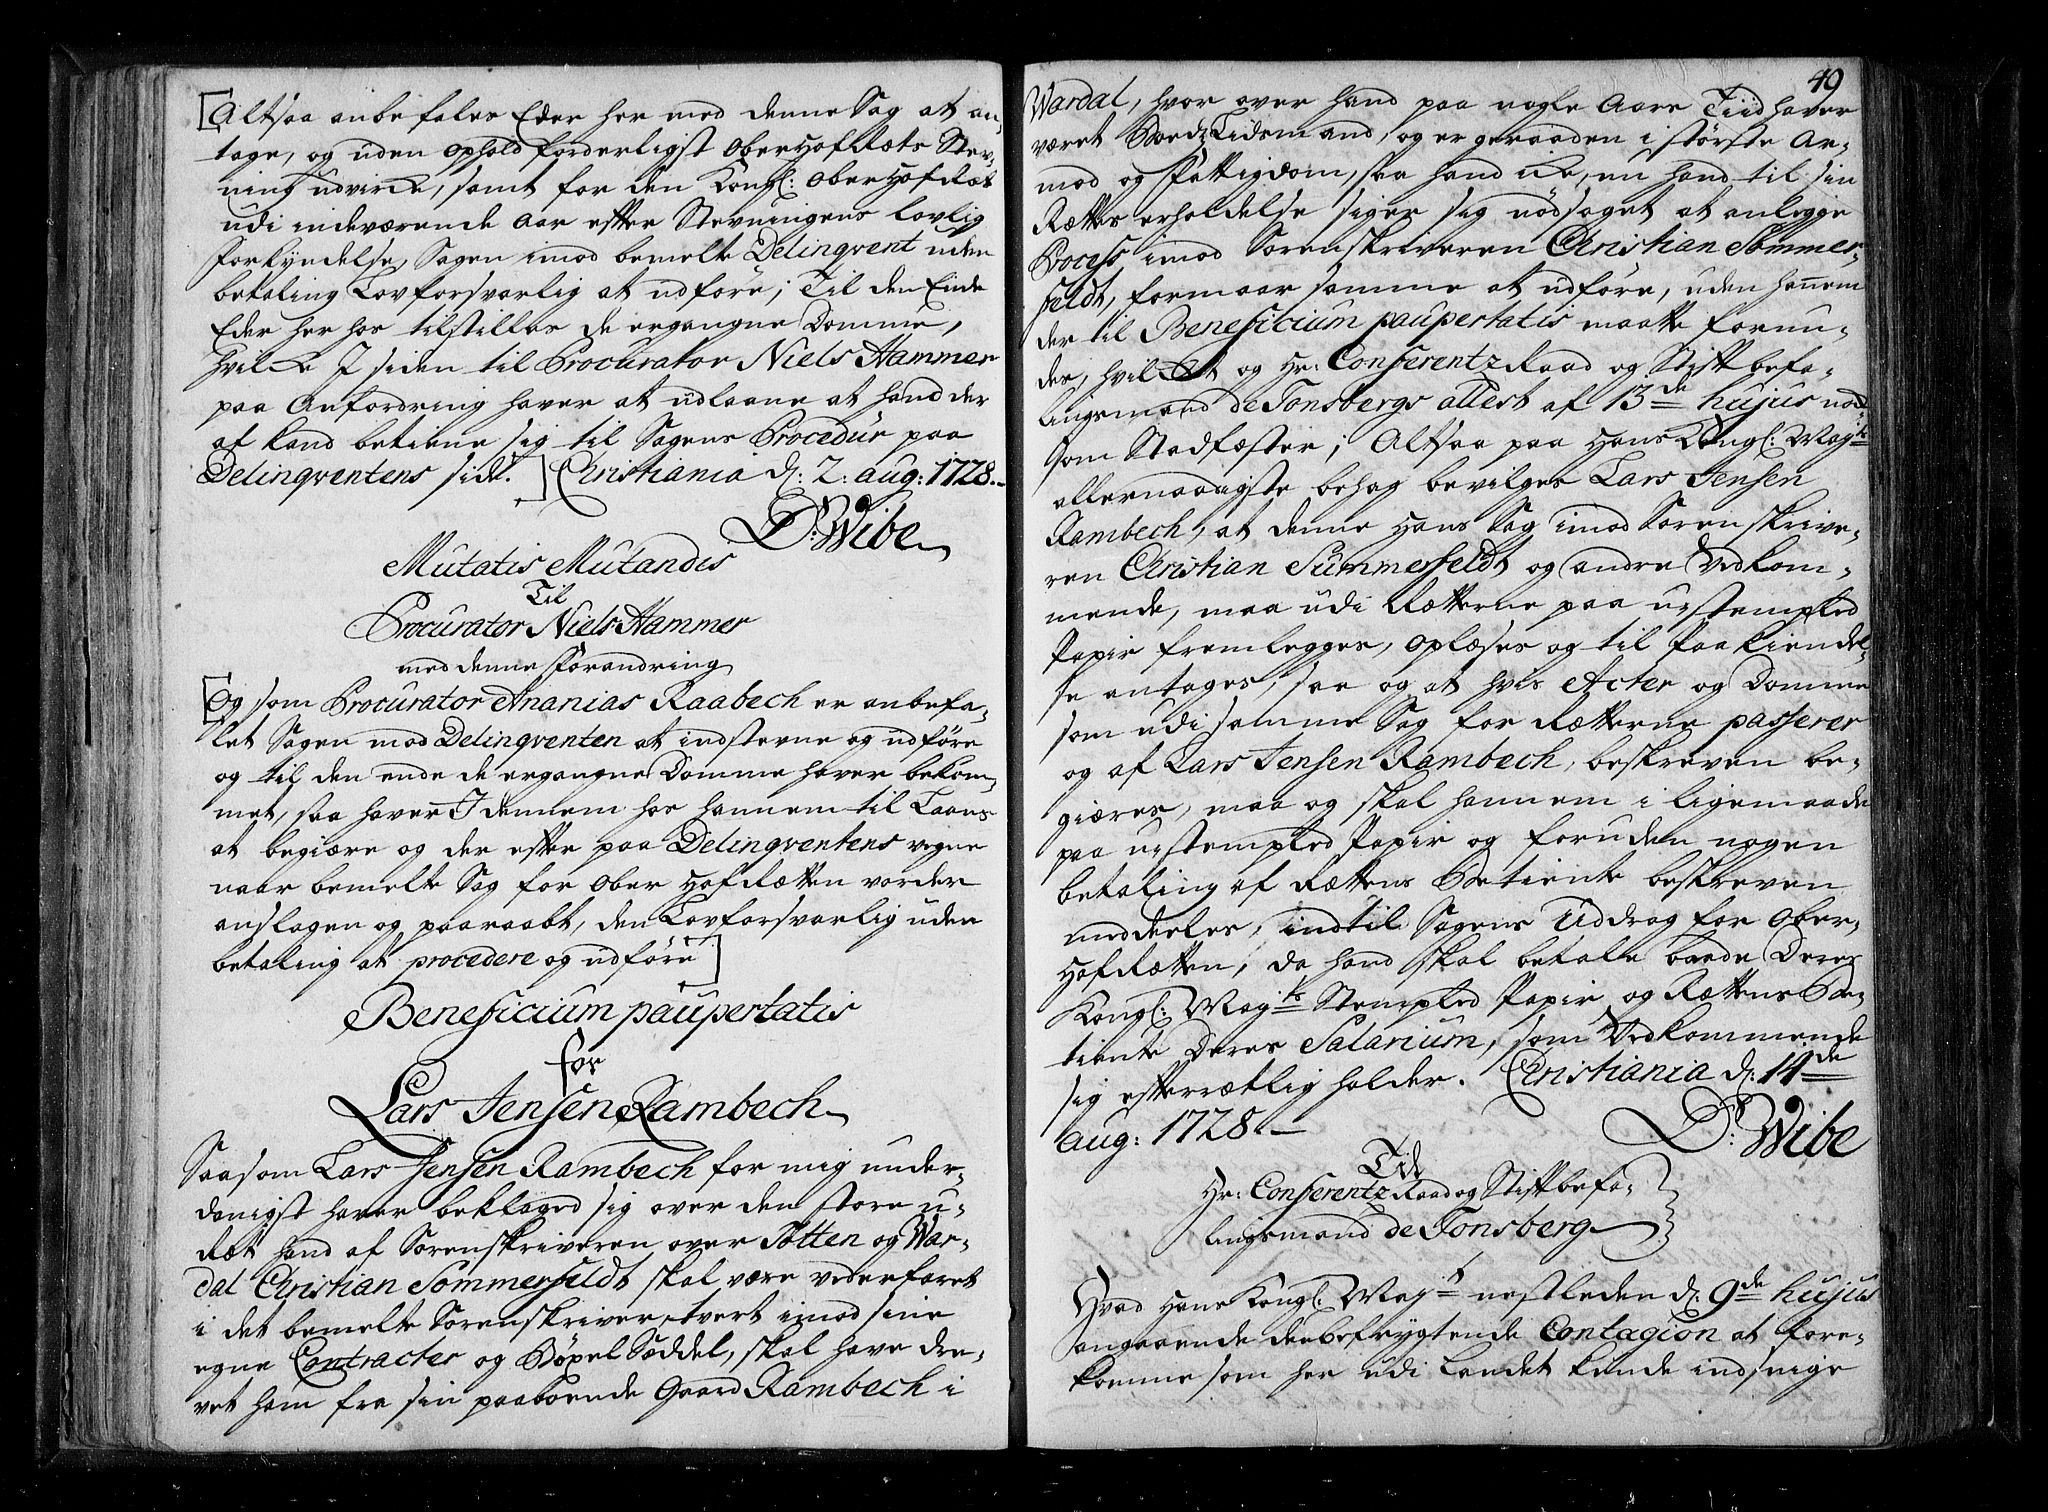 [Altsaa anbefales Eder her med denne Sag at an-
tage, og uden ophold forderligst OberHofRæts Stev-
ning udvirke, samt for den Kongl: OberHofRæt
udi indeværende Aar efter Stevningens lovlig
forkyndelse, Sagen imod bemelte Delinqvent uden
betaling Lovforsvarlig at udføre; Til den Ende
Eder her hos tilstilles de ergangne Domme,
hvilke I siden til Procurator Niels Hammer
paa Anfordring haver at udlaane at hand der
af kand betiene sig til Sagens Procedur paa
Delinqventens side.] Christiania d: 2: aug: 1728.
D: Wibe
Mutatis Mutandis
Til
Procurator Niels Hammer
med denne Forandring
[Og som Procurator Ananias Raabech er anbefa-
let Sagen mod Delinqventen at indstevne og udføre
og til den ende de ergangne Domme haver bekom-
met, saa haver I dennem hos hannem til Laans
at begiære og der efter paa Delinqventens vegne
naar bemelte Sag for Ober HofRætten vorder
anslagen og paaraabt, den Lovforsvarlig uden
betaling at procedere og udføre]
Beneficium paupertatis
for
Lars Jensen Rambech
Saasom Lars Jensen Rambech for mig under-
danigst haver beklaged sig over den store u-
Ræt hand af Sorenskriveren over Totten og War-
dal Christian Sommerfeldt skal være vederfaret
i det bemelte Sorenskriver, tvert imod sine
egne Contracter og Böxel Sæddel, skal have dre-
vet ham fra sin paaboende Gaard Rambech i
49
Wardal, hvor over hand paa nogle Aars Tiid haver
været Huus Tidsmand, og er geraaden i største Ar-
mod og Fattigdom, saa hand ke, nu hand til sin
Rættes erholdelse siger sig nödsaget at anlegge
Process imod Sorenskriveren Christian Sommer-
feldt, formaar samme at udføre, uden hannem
der til Beneficium paupertatis maatte forun-
des, hvilket og Hr: Conferentz Raad og Stiftbefa-
lingsmand de Tonsbergs attest af 13de hujus nod-
som Stadfæster; Altsaa paa Hans Kongl: Mayts
allernaadigste behag bevilges Lars Jensen
Rambech, at denne hans Sag imod Sorenskrive-
ren Christian Summerfeldt og andre Vedkom-
mende, maa udi Rætterne paa ustempled
Papir fremlegges, oplæses og til Paakiendel-
se antages, saa og at hvis Acter og Domme
som udi samme Sag for Rætterne passerer
og af Lars Jensen Rambech, beskreven be-
giæres, maa og skal hannem i ligemaade
paa ustempled Papir og foruden nogen
betaling af Rættens Betiente beskreven
meddeeles, indtil Sagens Uddrag for Ober-
HofRætten, da hand skal betale baade Deres
Kongl: Mayts Stempled Papir og Rættens Be-
tiente deres Salarium, som Vedkommende
sig efterrætlig holder. Christiania d: 14de
aug: 1728.
D: Wibe
Til
Hr: Conferentz Raad og Stiftbefa-
lingsmand de Tonsberg
Hvad Hans Kongl: Mayts nestleden d: 9de hujus
angaaende den befrygtende Contagion at fore-
komme som her udi Landet kunde indsnige